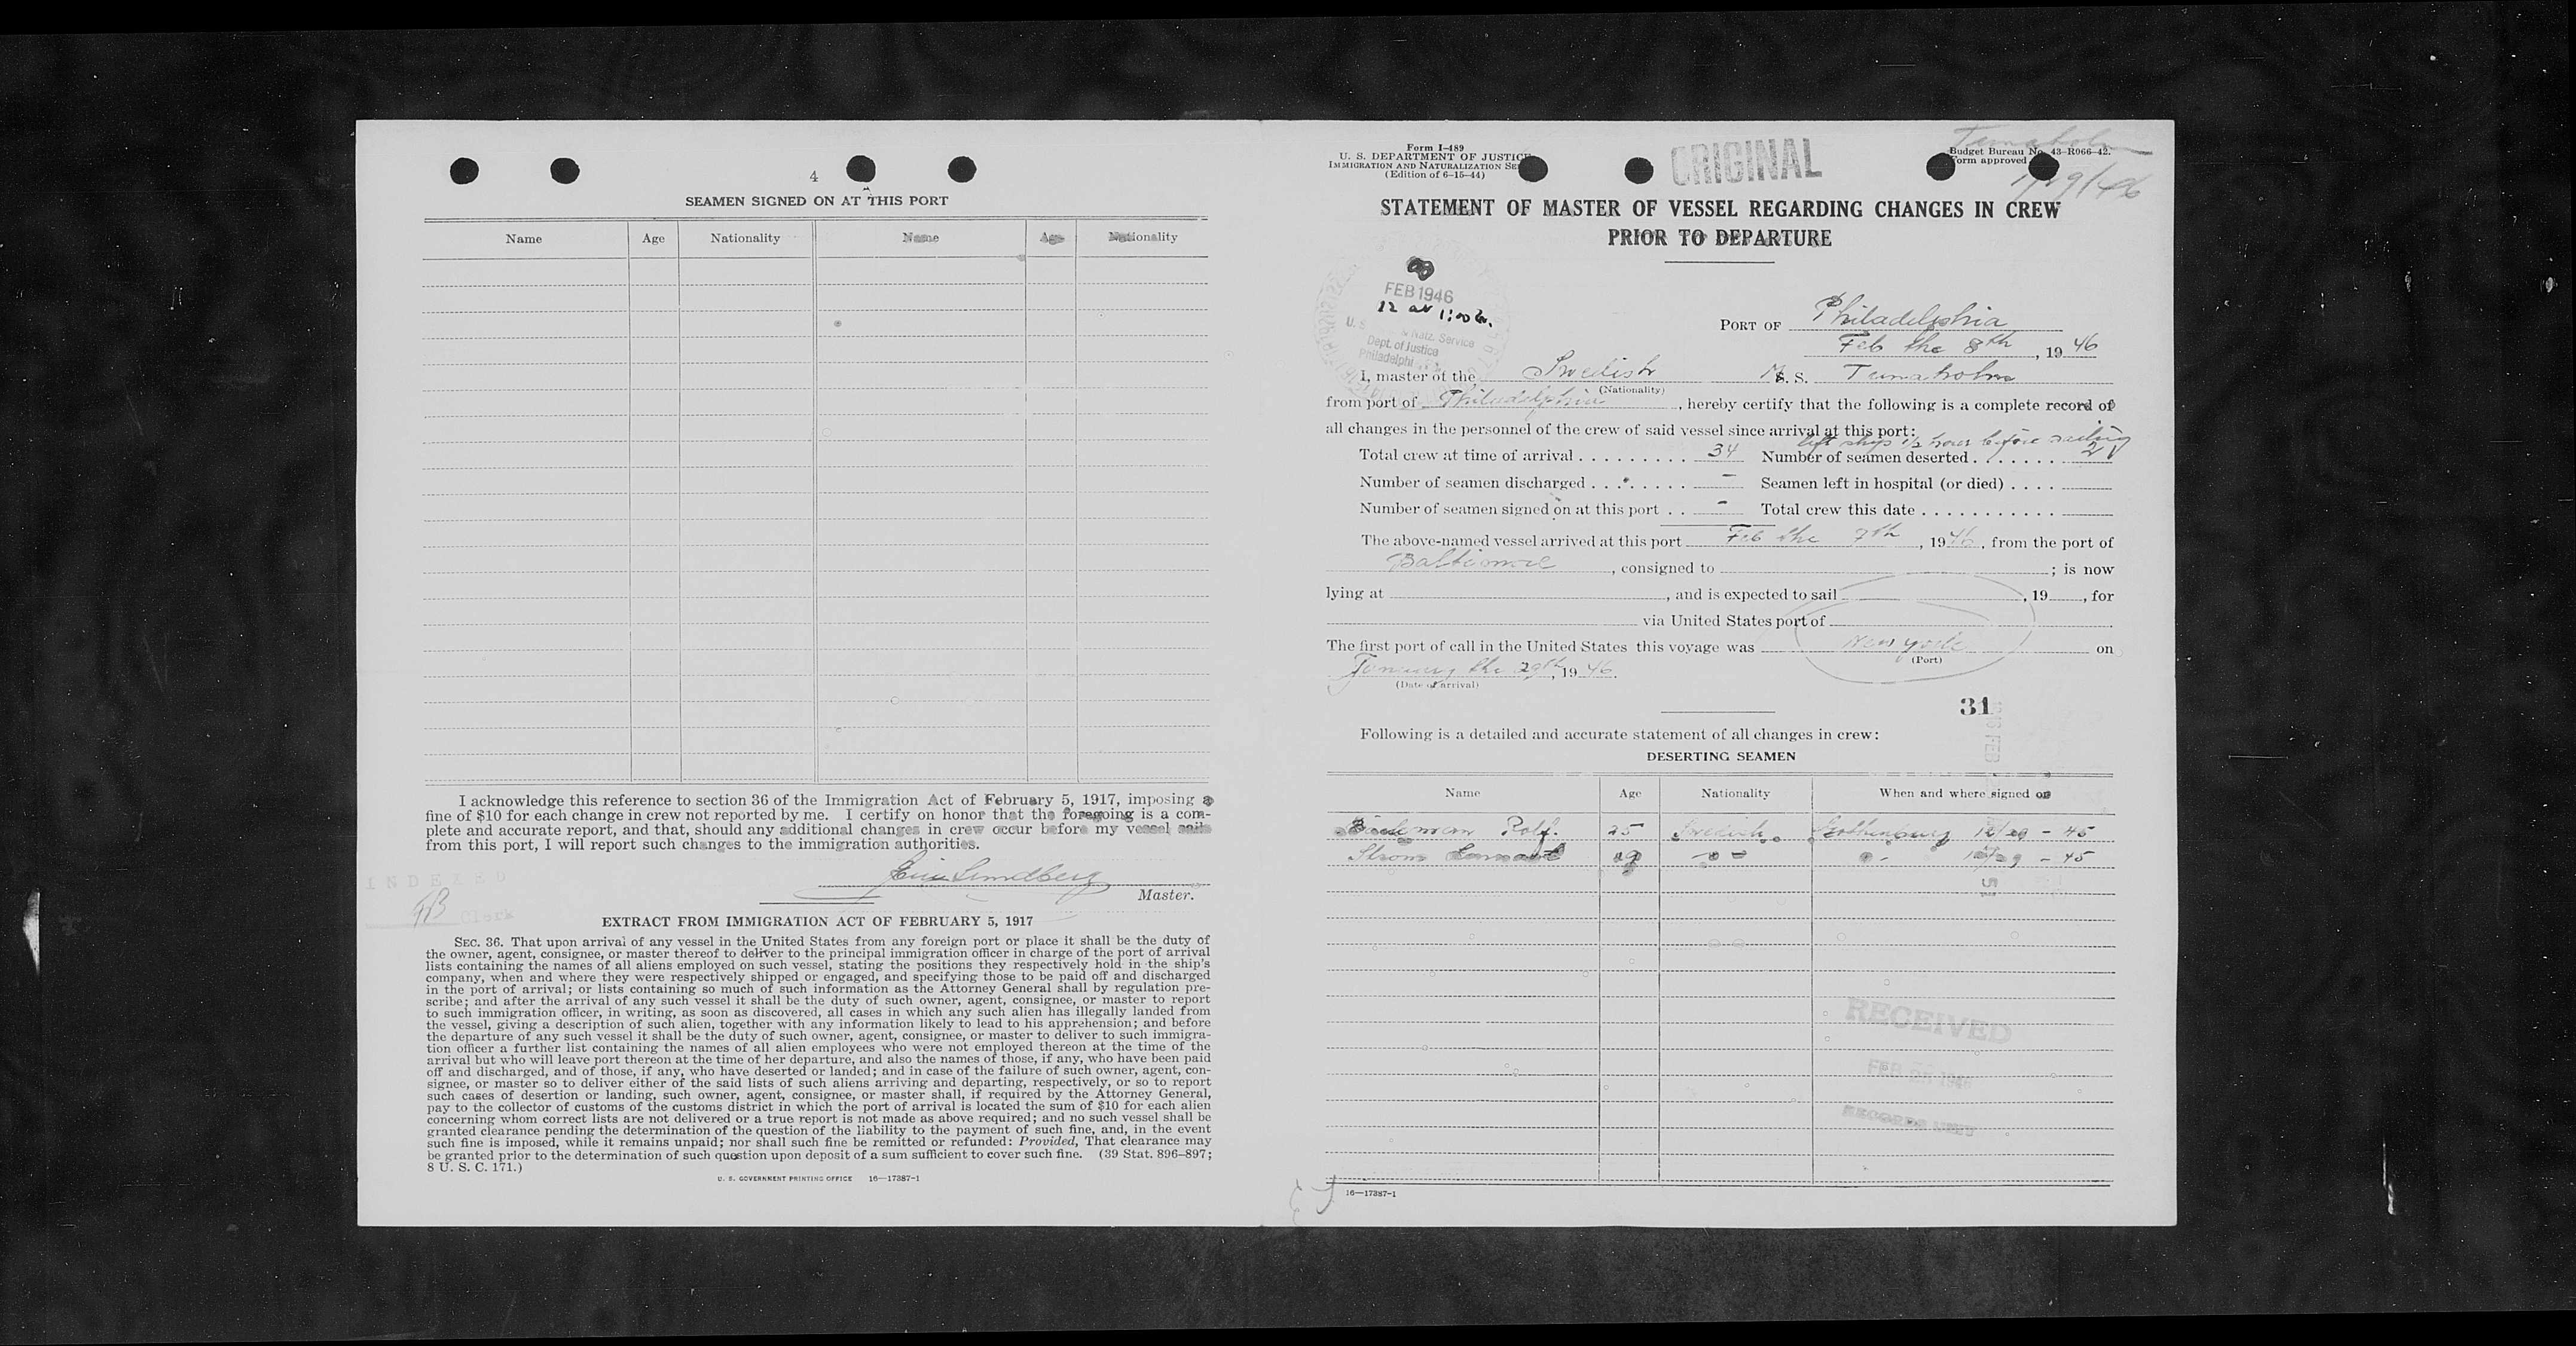 4
SEAMEN SIGNED ON AT THIS PORT
Name Age Nationality Name Age Nationality
I acknowledge this reference to section 36 of the Immigration Act of February 5, 1917, imposing a
fine of $10 for each change in crew not reported by me. I certify on honor that the foregoing is a com-
plete and accurate report, and that, should any additional changes in crew occur before my vessel sails
from this port, I will report such changes to the immigration authorities.
Lundberg
Master.
INDEXED
Clerk
EXTRACT FROM IMMIGRATION ACT OF FEBRUARY 5, 1917
SEC. 36. That upon arrival of any vessel in the United States from any foreign port or place it shall be the duty of
the owner, agent, consignee, or master thereof to deliver to the principal immigration officer in charge of the port of arrival
lists containing the names of all aliens employed on such vessel, stating the positions they respectively hold in the ship's
company, when and where they were respectively shipped or engaged, and specifying those to be paid off and discharged
in the port of arrival; or lists containing so much of such information as the Attorney General shall by regulation pre-
scribe; and after the arrival of any such vessel it shall be the duty of such owner, agent, consignee, or master to report
to such immigration officer, in writing, as soon as discovered, all cases in which any such alien has illegally landed from
the vessel, giving a description of such alien, together with any information likely to lead to his apprehension; and before
the departure of any such vessel it shall be the duty of such owner, agent, consignee, or master to deliver to such immigra-
tion officer a further list containing the names of all alien employees who were not employed thereon at the time of the
arrival but who will leave port thereon at the time of her departure, and also the names of those, if any, who have been paid
off and discharged, and of those, if any, who have deserted or landed; and in case of the failure of such owner, agent, con-
signee, or master so to deliver either of the said lists of such aliens arriving and departing, respectively, or so to report
such cases of desertion or landing, such owner, agent, consignee, or master shall, if required by the Attorney General,
pay to the collector of customs of the customs district in which the port of arrival is located the sum of $10 for each alien
concerning whom correct lists are not delivered or a true report is not made as above required; and no such vessel shall be
granted clearance pending the determination of the question of the liability to the payment of such fine, and, in the event
such fine is imposed, while it remains unpaid; nor shall such fine be remitted or refunded: Provided, That clearance may
be granted prior to the determination of such question upon deposit of a sum sufficient to cover such fine. (39 Stat. 896–897;
8 U. S. C. 171.)
U. S. GOVERNMENT PRINTING OFFICE 16—17387-1
Form I-489
U. S. DEPARTMENT OF JUSTICE
IMMIGRATION AND NATURALIZATION SE
(Edition of 6-15-44)
ORIGINAL
Budget Bureau No. 43-R066-42.
Form approved
STATEMENT OF MASTER OF VESSEL REGARDING CHANGES IN CREW
PRIOR TO DEPARTURE
FEB 1946
U. S. & Natz. Service
Dept. of Justice
PORT OF Philadelphia
Feb the 8th, 1946
I, master of the Swedish M. S.
(Nationality)
from port of Philadelphia, hereby certify that the following is a complete record of
all changes in the personnel of the crew of said vessel since arrival at this port:
left ship 1/2 hour before sailing
Total crew at time of arrival . . . . . . . . . 34 Number of seamen deserted . . . . . . . 2
Number of seamen discharged . . . . . . . . – Seamen left in hospital (or died) . . . .
Number of seamen signed on at this port . . – Total crew this date . . . . . . . . . . .
The above-named vessel arrived at this port Feb the 7th, 1946, from the port of
Baltimore, consigned to ; is now
lying at , and is expected to sail , 19 , for
via United States port of
The first port of call in the United States this voyage was New York on
(Port)
January the 29th, 1946.
(Date of arrival)
31
Following is a detailed and accurate statement of all changes in crew:
DESERTING SEAMEN
Name Age Nationality When and where signed on
Rolf. 25 Swedish Gothenburg – 45
Strom – 45
RECEIVED
FEB 1946
RECORDS UNIT
16—17387-1